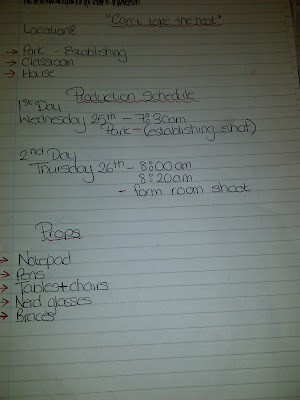 "Can't take the heat"
Locations
→ Park - Establishing
→ Classroom
→ House
Production Schedule
1st Day
Wednesday 25th - 7:30am
Park - (establishing shot)
2nd Day
Thursday 26th - 8:00am
8:20am
- form room shoot
Props
→ Notepad
→ Pens
→ Tables + chairs
→ Nerd glasses
→ Braces